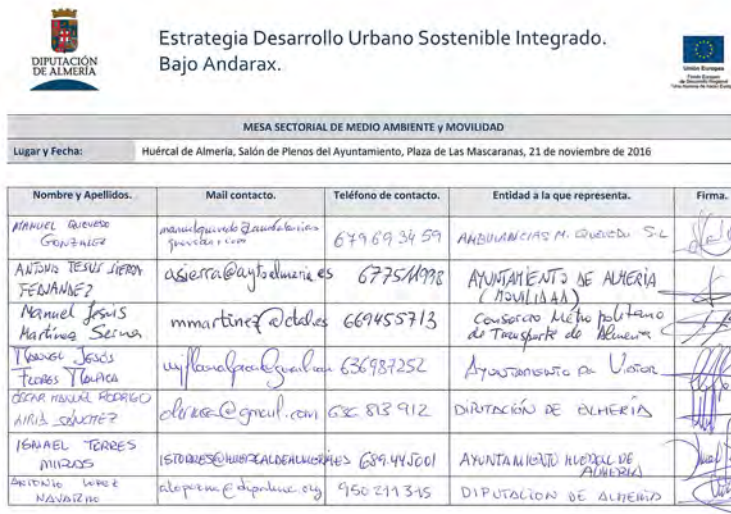 DIPUTACIÓN
DE ALMERÍA
Estrategia Desarrollo Urbano Sostenible Integrado.
Bajo Andarax.
Unión Europea
MESA SECTORIAL DE MEDIO AMBIENTE y MOVILIDAD
Lugar y Fecha: Huércal de Almería, Salón de Plenos del Ayuntamiento, Plaza de Las Mascaranas, 21 de noviembre de 2016
Nombre y Apellidos. Mail contacto. Teléfono de contacto. Entidad a la que representa. Firma.
MANUEL QUEVEDO
GONZALEZ
679 69 34 59 AMBULANCIAS M. QUEVEDO S.L
ANTONIO JESUS SIERRA
FERNANDEZ
asierra@aytoalmeria.es 677511998 AYUNTAMIENTO DE ALMERÍA
(MOVILIDAD)
Manuel Jesús
Martínez Serna
mmartinez@ctal.es 669455713 Consorcio Metropolitano
de Transporte de Almería
MANUEL JESÚS
FLORES
636987252 AYUNTAMIENTO DE VIATOR
OSCAR MANUEL RODRIGO
SÁNCHEZ
@gmail.com 636 813 912 DIPUTACIÓN DE ALMERÍA
ISMAEL TORRES
MIRAS
ISTORRES@HUERCALDEALMERIA.ES 689.445001 AYUNTAMIENTO HUERCAL DE
ALMERIA
ANTONIO LOPEZ
NAVARRO
950 211315 DIPUTACION DE ALMERIA